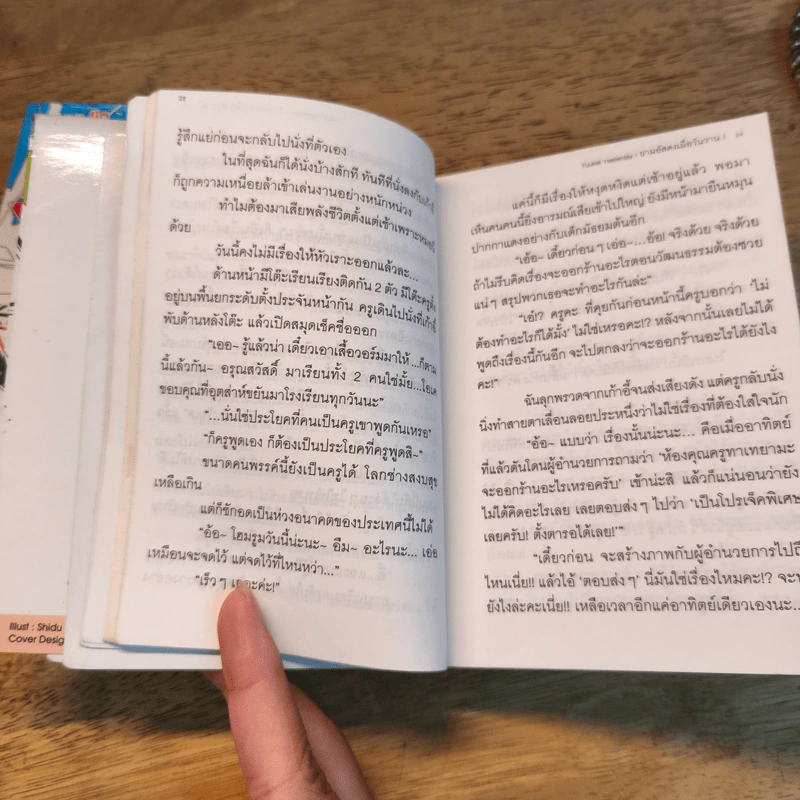 28
รู้สึกแย่ก่อนจะกลับไปนั่งที่ตัวเอง
ในที่สุดฉันก็ได้นั่งบ้างสักที ทันทีที่นั่งลงกับเก้าอี้
ก็ถูกความเหนื่อยล้าเข้าเล่นงานอย่างหนักหน่วง
ทำไมต้องมาเสียพลังชีวิตตั้งแต่เช้าเพราะ
ด้วย
วันนี้คงไม่มีเรื่องให้หัวเราะออกแล้วละ...
ด้านหน้ามีโต๊ะเรียนเรียงติดกัน 2 ตัว มีโต๊ะครูตั้ง
อยู่บนพื้นยกระดับตั้งประจันหน้ากัน ครูเดินไปนั่งที่เก้าอี้
พับด้านหลังโต๊ะ แล้วเปิดสมุดเช็คชื่อออก
“เออ~ รู้แล้วน่า เดี๋ยวเอาเสื้อวอร์มมาให้ ...ก็ตาม
นี้แล้วกัน~ อรุณสวัสดิ์ มาเรียนทั้ง 2 คนใช่มั้ย...โอเค
ขอบคุณที่อุตส่าห์ขยันมาโรงเรียนทุกวันนะ”
“...นั่นใช่ประโยคที่คนเป็นครูเขาพูดกันเหรอ”
“ก็ครูพูดเอง ก็ต้องเป็นประโยคที่ครูพูดสิ~”
ขนาดคนพรรค์นี้ยังเป็นครูได้ โลกช่างสงบสุข
เหลือเกิน
แต่ก็ชักอดเป็นห่วงอนาคตของประเทศนี้ไม่ได้
“อ้อ~ โฮมรูมวันนี้น่ะนะ~ อืม~ อะไรนะ... เอ่อ
เหมือนจะจดไว้ แต่จดไว้ที่ไหนหว่า...”
“เร็วๆ เถอะค่ะ!”
Illust : Shidu
Cover Desig
Tsukai Yesterday : ยามอัสดงเมื่อวันวาน 1 29
แค่นี้ก็มีเรื่องให้หงุดหงิดแต่เช้าอยู่แล้ว พอมา
เห็นคนคนนี้ยิ่งอารมณ์เสียเข้าไปใหญ่ ยังมีหน้ามายืนหมุน
ปากกาแดงอย่างกับเด็กมัธยมต้นอีก
“เอ้อ~ เดี๋ยวก่อนๆ เอ่อ~...อ้อ! จริงด้วย จริงด้วย
ถ้าไม่รีบคิดเรื่องจะออกร้านอะไรตอนวัฒนธรรมต้องซวย
แน่ๆ สรุปพวกเธอจะทำอะไรกันล่ะ”
“เอ๋!? ครูคะ ที่คุยกันก่อนหน้านี้ครูบอกว่า ‘ไม่
ต้องทำอะไรก็ได้มั้ง’ ไม่ใช่เหรอคะ!? หลังจากนั้นเลยไม่ได้
พูดถึงเรื่องนี้กันอีก จะไปตกลงว่าจะออกร้านอะไรได้ยังไง
คะ!”
ฉันลุกพรวดจากเก้าอี้จนส่งเสียงดัง แต่ครูกลับนั่ง
นิ่งทำสายตาเลื่อนลอยประหนึ่งว่าไม่ใช่เรื่องที่ต้องใส่ใจนัก
“อ้อ~ แบบว่า เรื่องนั้นน่ะนะ... คือเมื่ออาทิตย์
ที่แล้วดันโดนผู้อำนวยการถามว่า ‘ห้องคุณครูทาเทยามะ
จะออกร้านอะไรเหรอครับ’ เข้าน่ะสิ แล้วก็แน่นอนว่ายัง
ไม่ได้คิดอะไรเลย เลยตอบส่งๆ ไปว่า ‘เป็นโปรเจ็คพิเศษ
เลยครับ! ตั้งตารอได้เลย!’”
“เดี๋ยวก่อน จะสร้างภาพกับผู้อำนวยการไปถึ
ไหนเนี่ย!! แล้วไอ้ ‘ตอบส่งๆ’ นี่มันใช่เรื่องไหมคะ!? จะท
ยังไงล่ะคะเนี่ย!! เหลือเวลาอีกแค่อาทิตย์เดียวเองนะ...